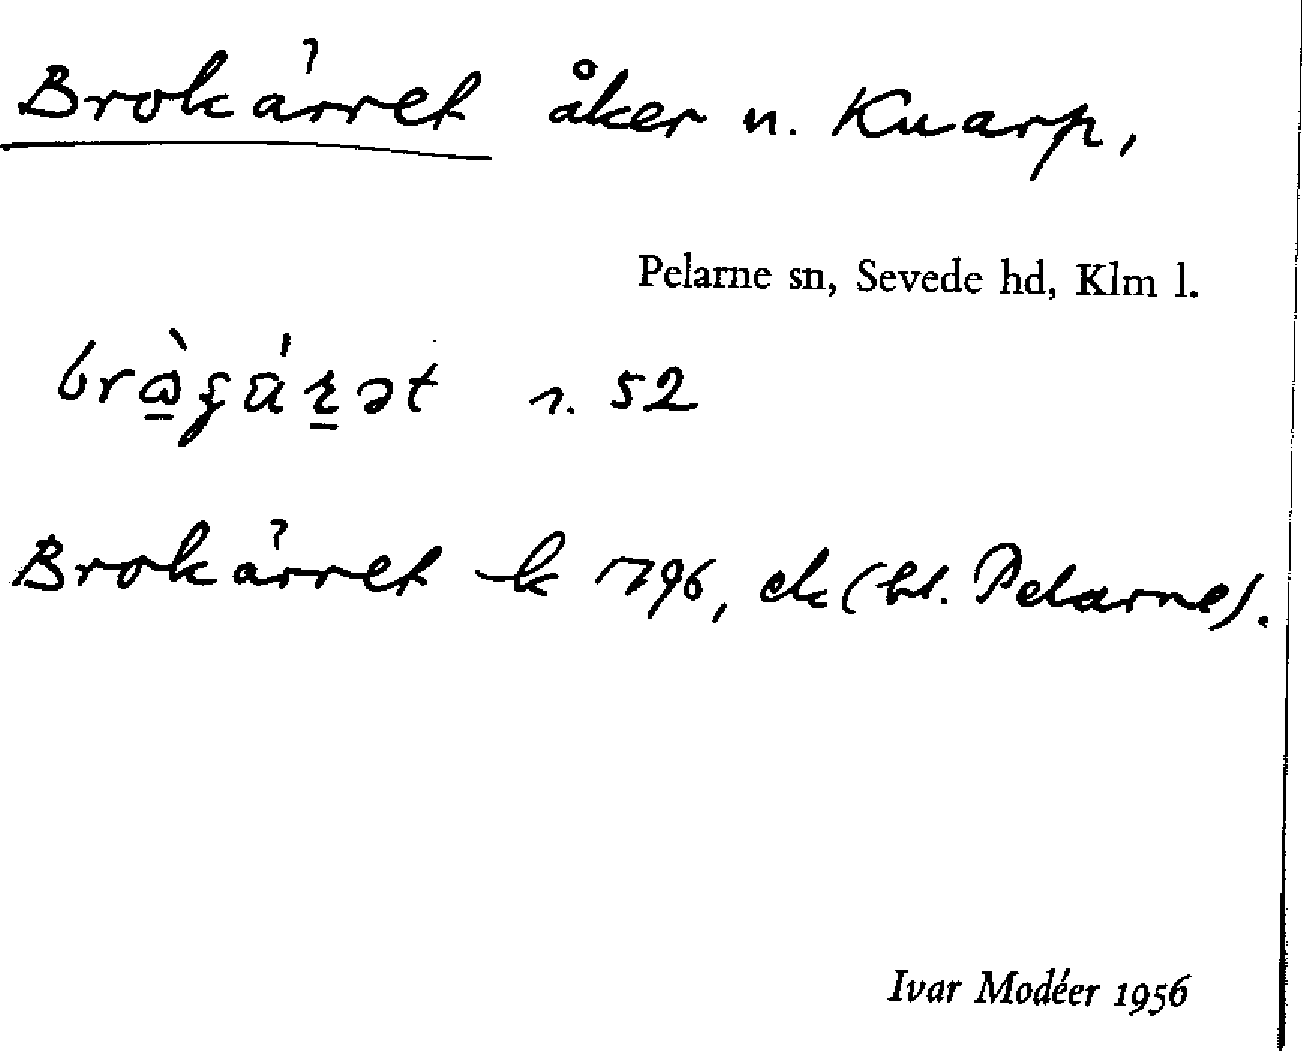 Brokärret åker n. Knarp,
Pelarne sn, Sevede hd, Klm l.
52
Brokärret k 1796, ek (bl. Pelarne).
Ivar Modéer 1956